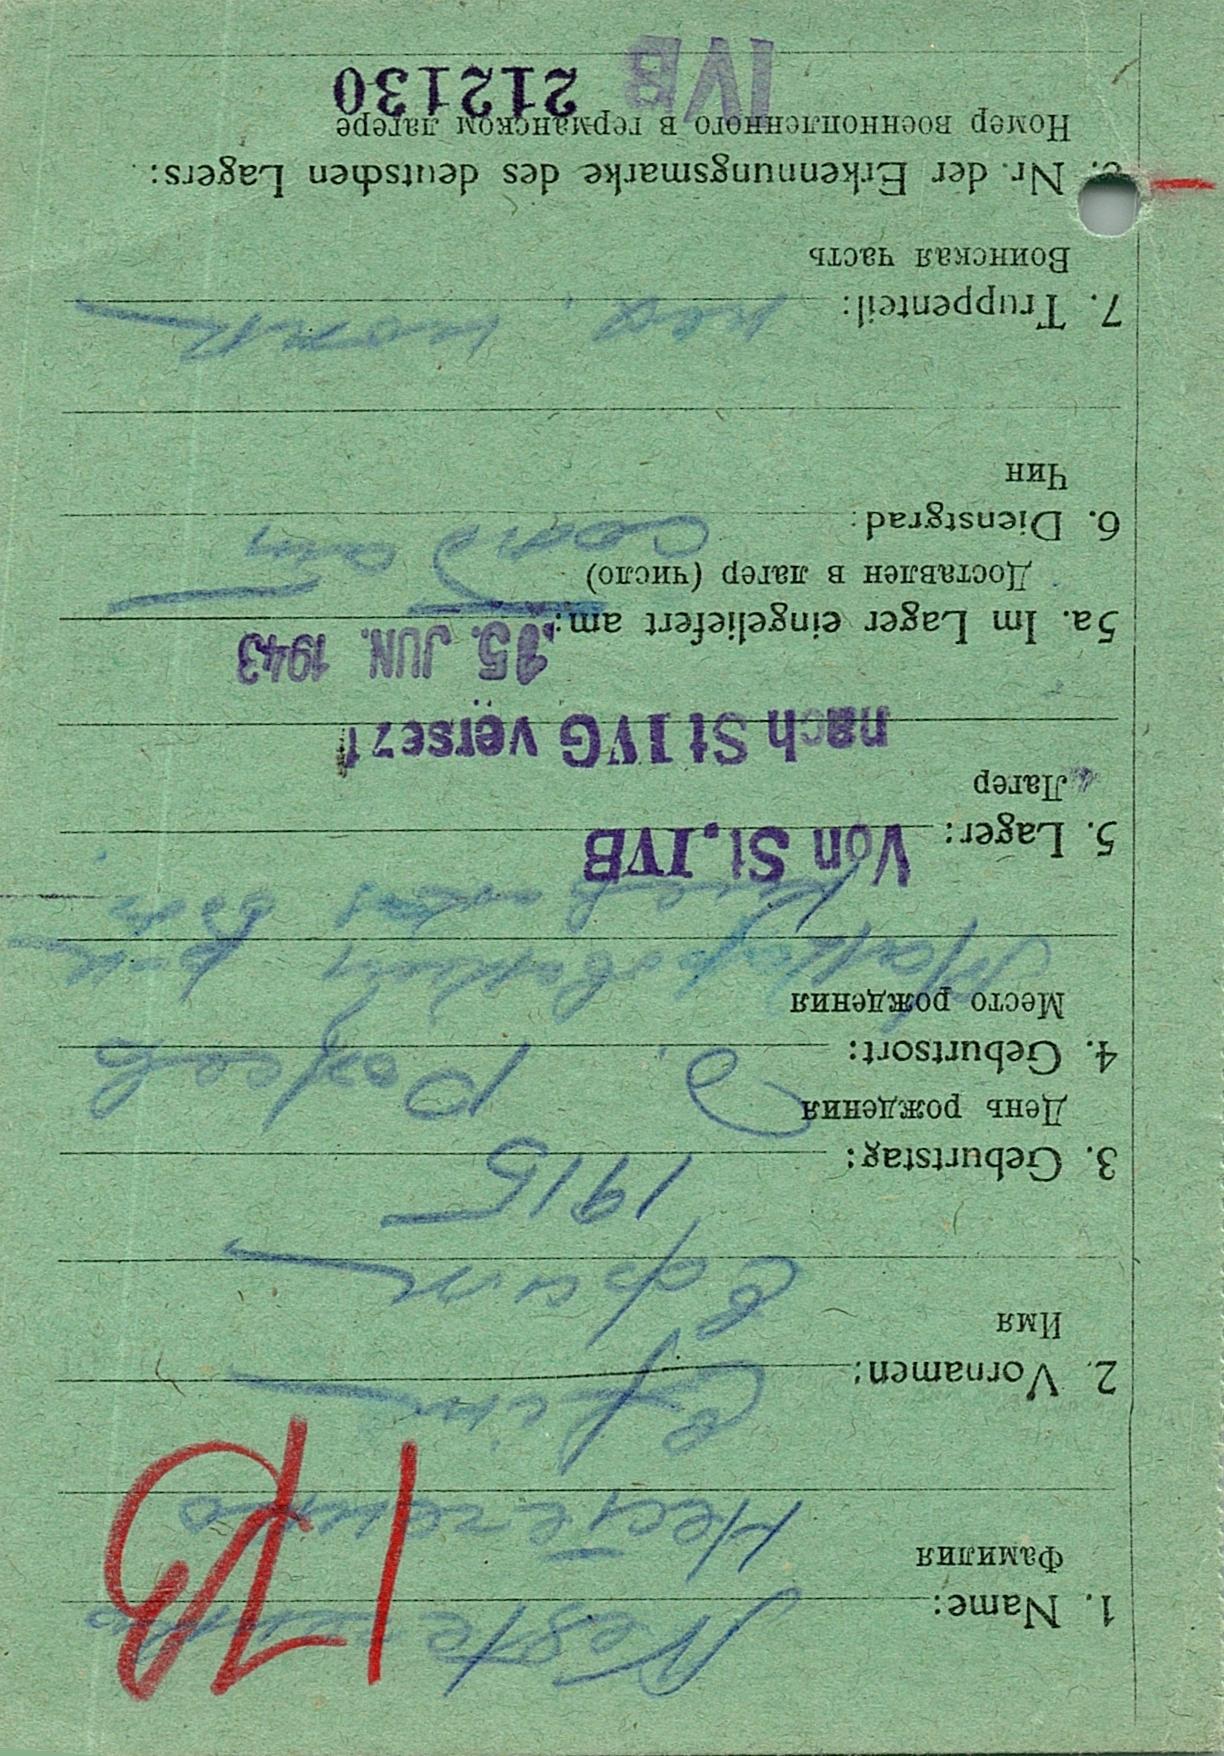 1. Name:
Фамилия
Нестеренко
2. Vornamen: Efim
Имя
Ефим
3. Geburtstag: 1915
День рождения
4. Geburtsort: с. Рожев
Место рождения
Макаровский р-н
Киевская обл
5. Lager: Von St. IVB
Лагер
nach St IVG versezt
15. JUN. 1943
5a. Im Lager eingeliefert am:
Доставлен в лагер (число)
6. Dienstgrad: Солдат
Чин
7. Truppenteil:
Воинская часть
8. Nr. der Erkennungsmarke des deutschen Lagers:
Номер военнопленного в германском лагере
IVB 212130